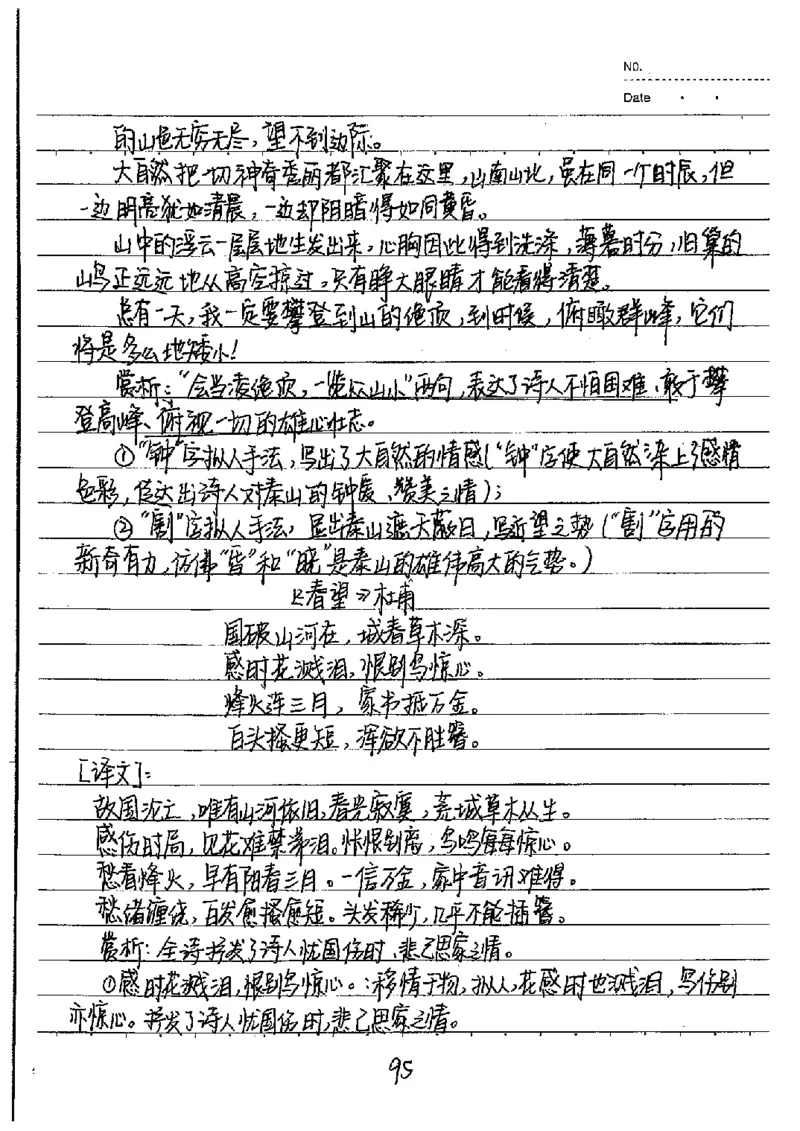 NO.
Date
的山色无穷无尽，望不到边际。
大自然把一切神奇秀丽都汇聚在这里，山南山北，虽在同一个时辰，但
一边明亮犹如清晨，一边却阴暗得如同黄昏。
山中的浮云一层层地生发出来，心胸因此得到洗涤，薄暮时分，旧巢的
山鸟正远远地从高空掠过，只有睁大眼睛才能看得清楚。
总有一天，我一定要攀登到山的绝顶，到时候，俯瞰群峰，它们
将是多么地矮小！
赏析："会当凌绝顶，一览众山小"两句，表达了诗人不怕困难、敢于攀
登高峰、俯视一切的雄心壮志。
①"钟"字拟人手法，写出了大自然的情感（"钟"字使大自然染上了感情
色彩，传达出诗人对泰山的钟爱、赞美之情）；
②"割"字拟人手法，显出泰山遮天蔽日，写近望之势（"割"字用的
新奇有力，仿佛"昏"和"晓"是泰山的雄伟高大的气势。）
《春望》杜甫
国破山河在，城春草木深。
感时花溅泪，恨别鸟惊心。
烽火连三月，家书抵万金。
白头搔更短，浑欲不胜簪。
[译文]：
故国沦亡，唯有山河依旧，春光寂寞，荒城草木丛生。
感伤时局，见花难禁涕泪。怅恨别离，鸟鸣每每惊心。
愁看烽火，早有阳春三月。一信万金，家中音讯难得。
愁绪缠绕，百发愈搔愈短。头发稀少，几乎不能插簪。
赏析：全诗抒发了诗人忧国伤时、悲己思家之情。
①感时花溅泪，恨别鸟惊心。：移情于物，拟人，花感时也溅泪，鸟伤别
亦惊心。抒发了诗人忧国伤时，悲己思家之情。
95